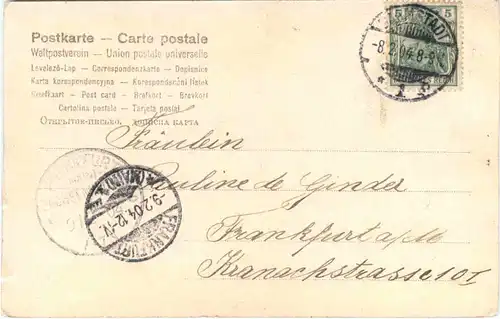 Postkarte — Carte postale
Weltpostverein — Union postale universelle
Levelező-Lap — Correspondenzkarte — Dopisnice
Karta korespondencyjna — Korespondenční lístek
Briefkaart — Post card — Brefkort — Brevkort
Cartolina postale — Tarjeta postal
ОТКРЫТОЕ-ПИСЬМО. ДОПИСНА КАРТА
5
5
STADT
-8.2.04.8-9
1
FRANKFURT
(MAIN)
-9.2.04.12-1V.
FRANKFURT
Fräulein
Pauline de Ginder
Frankfurt a/M
Kranachstrasse 10 I